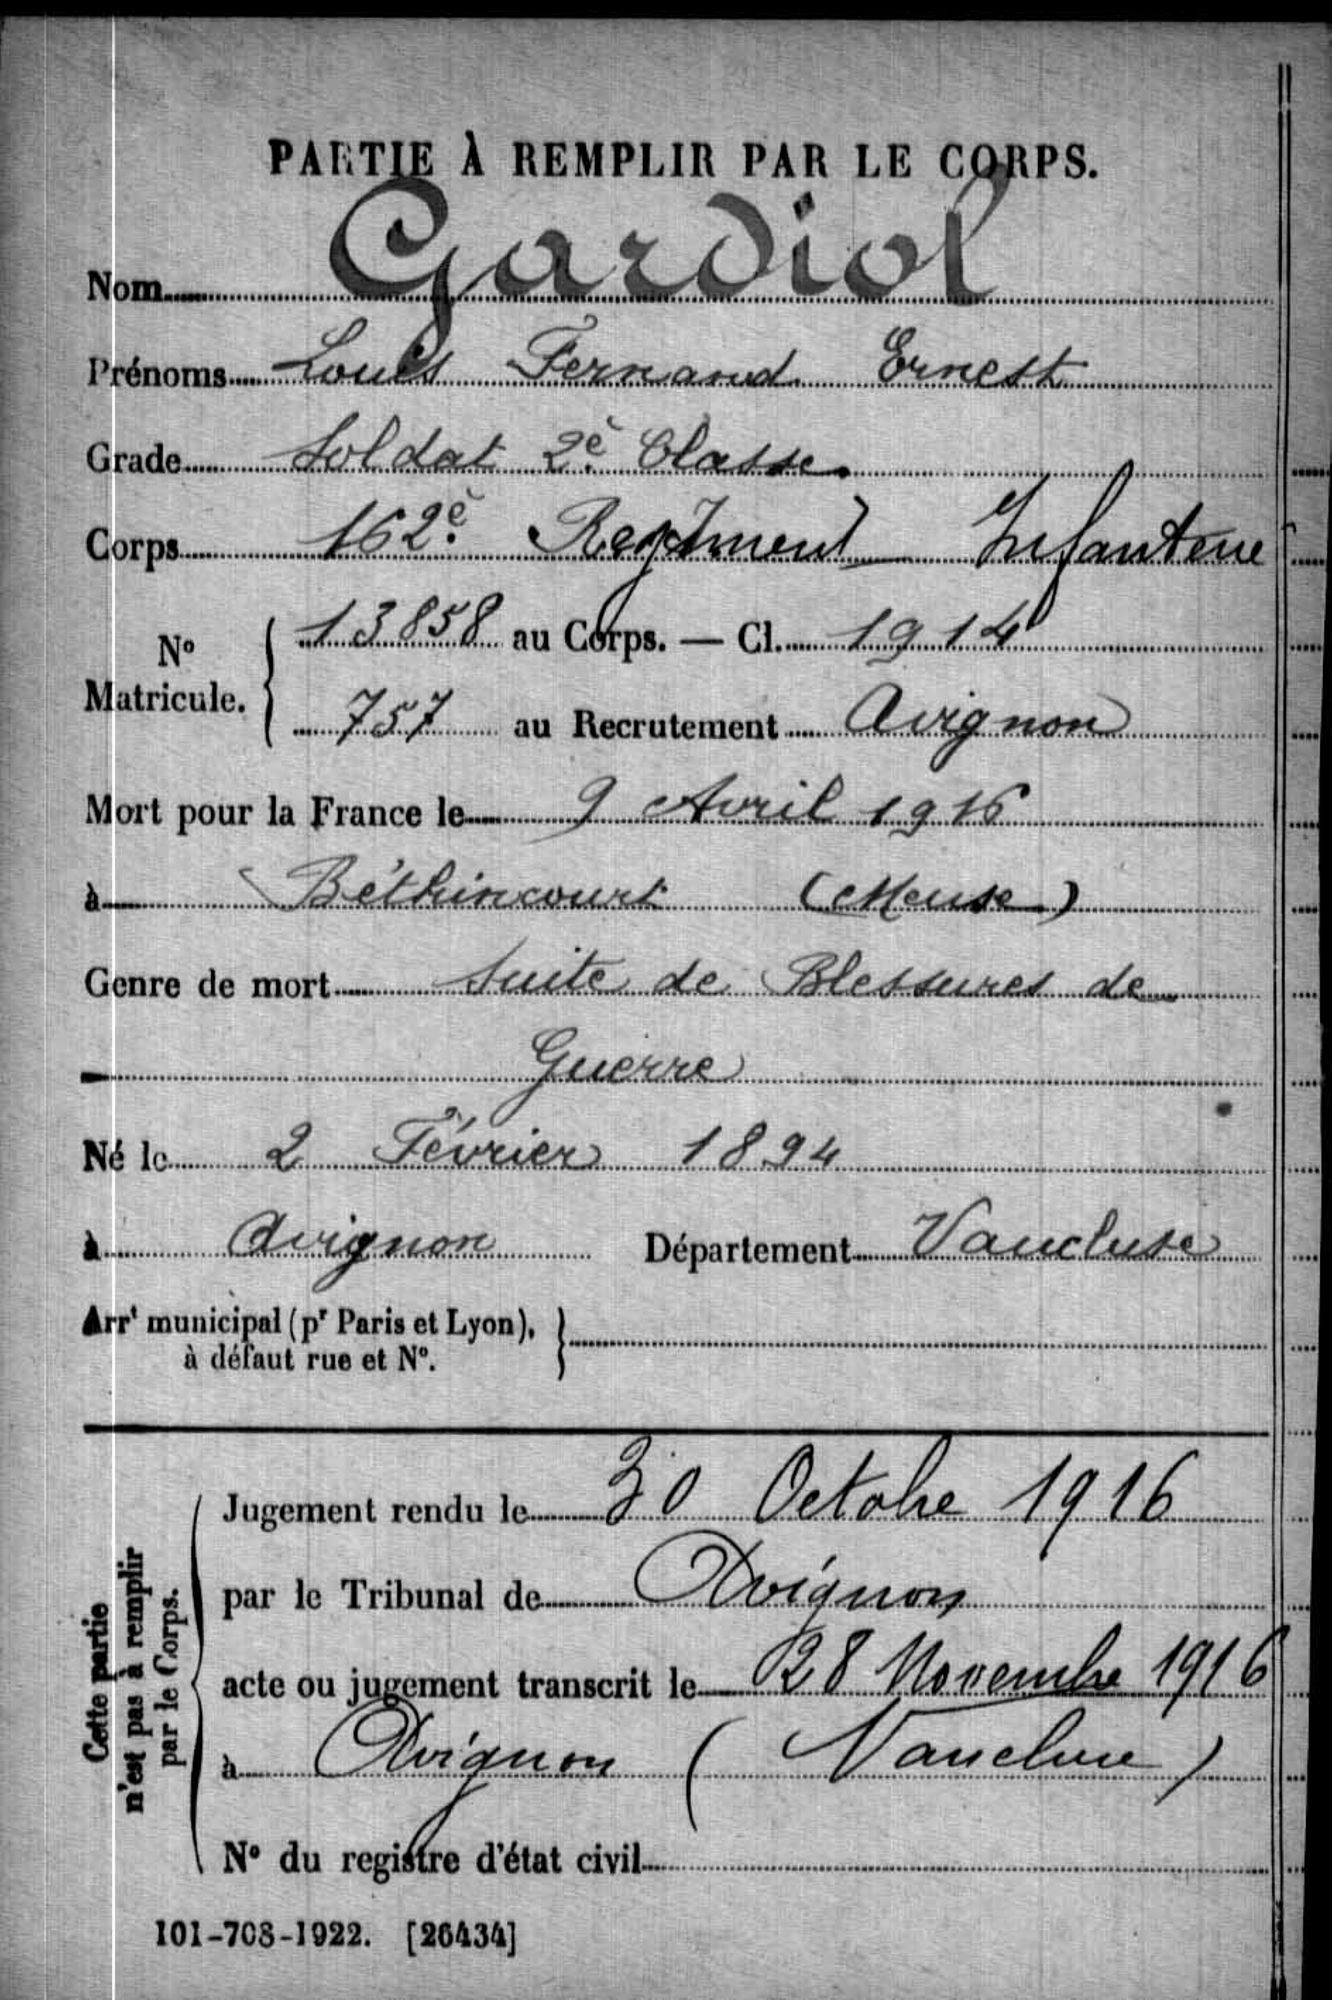 PARTIE À REMPLIR PAR LE CORPS.
Nom Gardiol
Prénoms Louis Fernand Ernest
Grade Soldat 2è Classe
Corps 162è Regiment Infanterie
N° Matricule. { 13858 au Corps. — Cl. 1914
757 au Recrutement Avignon
Mort pour la France le 9 Avril 1916
à Béthincourt (Meuse)
Genre de mort Suite de Blessures de
Guerre
Né le 2 Février 1894
à Avignon Département Vaucluse
Arrt municipal (pr Paris et Lyon),
à défaut rue et N°. }
Cette partie
n'est pas à remplir
par le Corps.
Jugement rendu le 30 Octobre 1916
par le Tribunal de Avignon
acte ou jugement transcrit le 28 Novembre 1916
à Avignon (Vaucluse)
N° du registre d'état civil
101-708-1922. [26434]